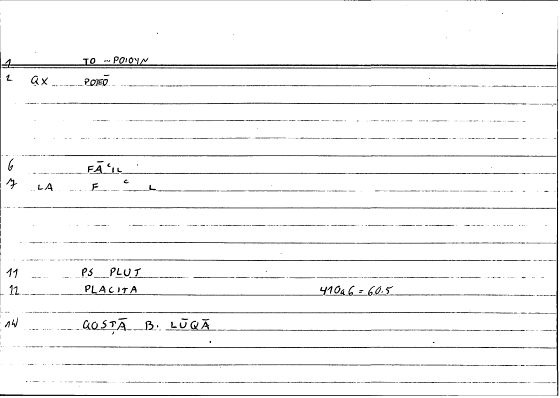 1 TO – POIOYN
2 QX POIEŌ
6 FĀʿIL
7 LA F ʿ L
11 PS PLUT
12 PLACITA 410a6 = 60.5
14 QOSṬĀ B. LŪQĀ